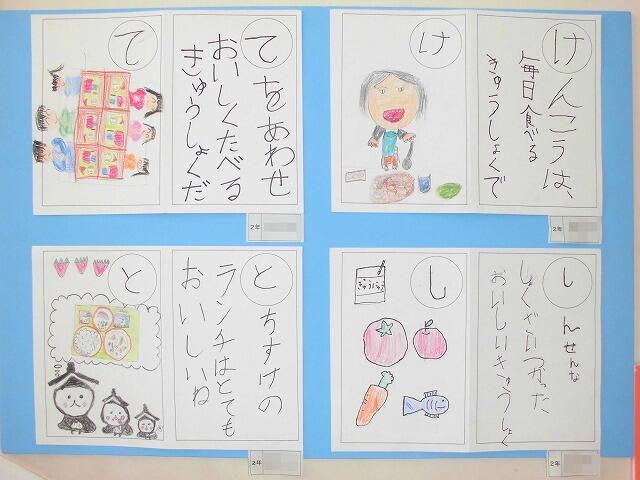 て
てをあわせ
おいしくたべる
きゅうしょくだ
2年
け
けんこうは、
毎日食べる
きゅうしょくで
2年
と
とちすけの
ランチはとても
おいしいね
2年
し
しんせんな
しょくざいつかった
おいしいきゅうしょく
2年